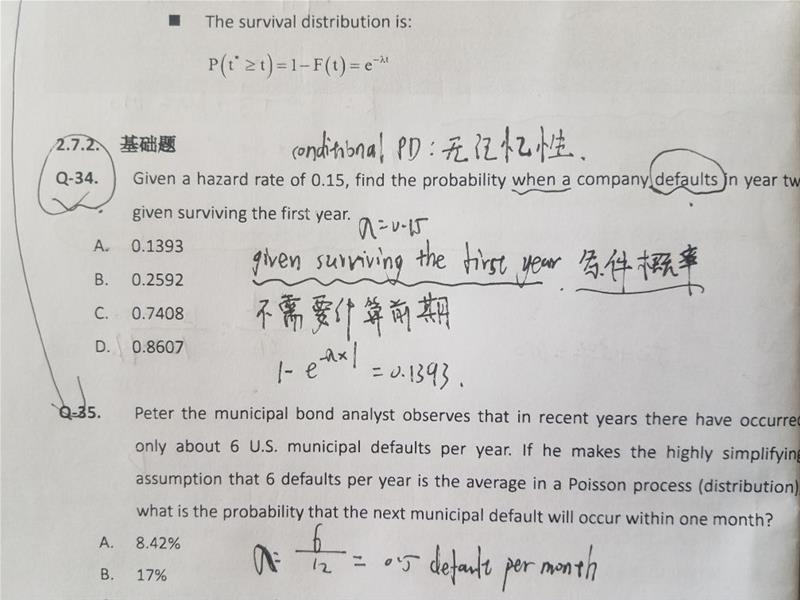 ■ The survival distribution is:
P(t* ≥ t) = 1 − F(t) = e^{−λt}
2.7.2. 基础题 conditional PD : 无记忆性.
Q-34. Given a hazard rate of 0.15, find the probability when a company defaults in year tw
given surviving the first year.
λ=0.15
A. 0.1393
given surviving the first year. 条件概率
B. 0.2592
C. 0.7408 不需要计算前期
D. 0.8607
1- e^{-λ×1} = 0.1393.
Q-35. Peter the municipal bond analyst observes that in recent years there have occurred
only about 6 U.S. municipal defaults per year. If he makes the highly simplifying
assumption that 6 defaults per year is the average in a Poisson process (distribution)
what is the probability that the next municipal default will occur within one month?
A. 8.42%
λ= 6/12 = 0.5 default per month
B. 17%